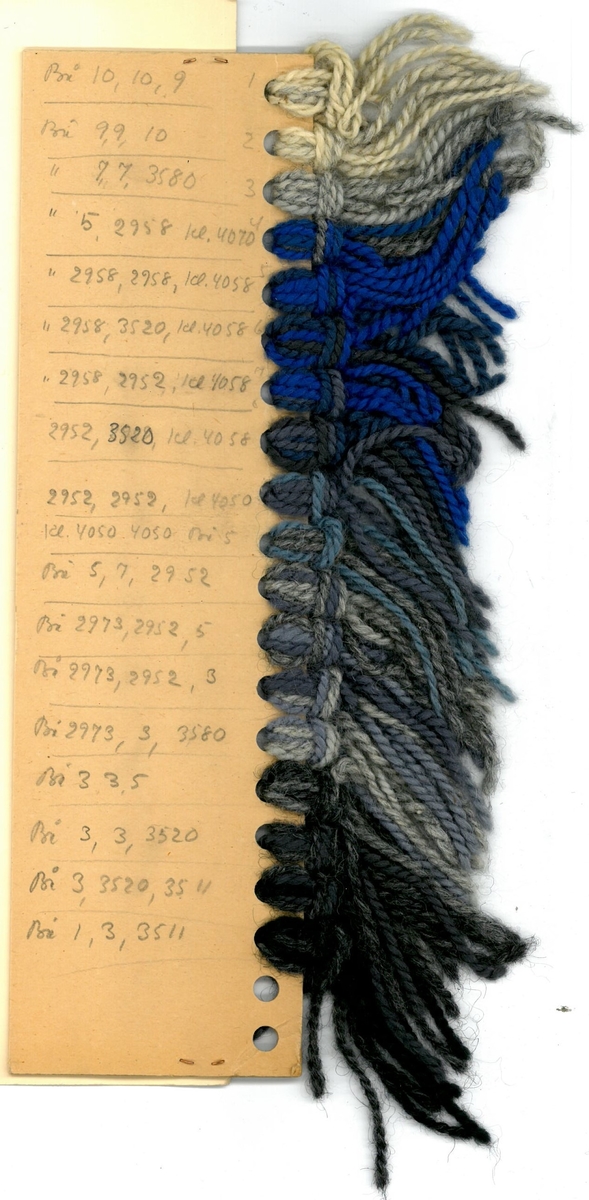 Bå 10, 10, 9 1
Bå 9,9, 10 2
" 7, 7, 3580 3
" 5, 2958 kl. 4070 4
" 2958, 2958, kl. 4058
" 2958, 3520, kl. 4058 6
" 2958, 2952, kl 4058
2952, 3520, kl. 4058
2952, 2952, kl 4050
kl. 4050 4050 Bå 5
Bå 5, 7, 2952
Bå 2973, 2952, 5
Bå 2973, 2952, 3
Bå 2973, 3, 3580
Bå 3 3, 5
Bå 3, 3, 3520
Bå 3, 3520, 3511
Bå 1, 3, 3511